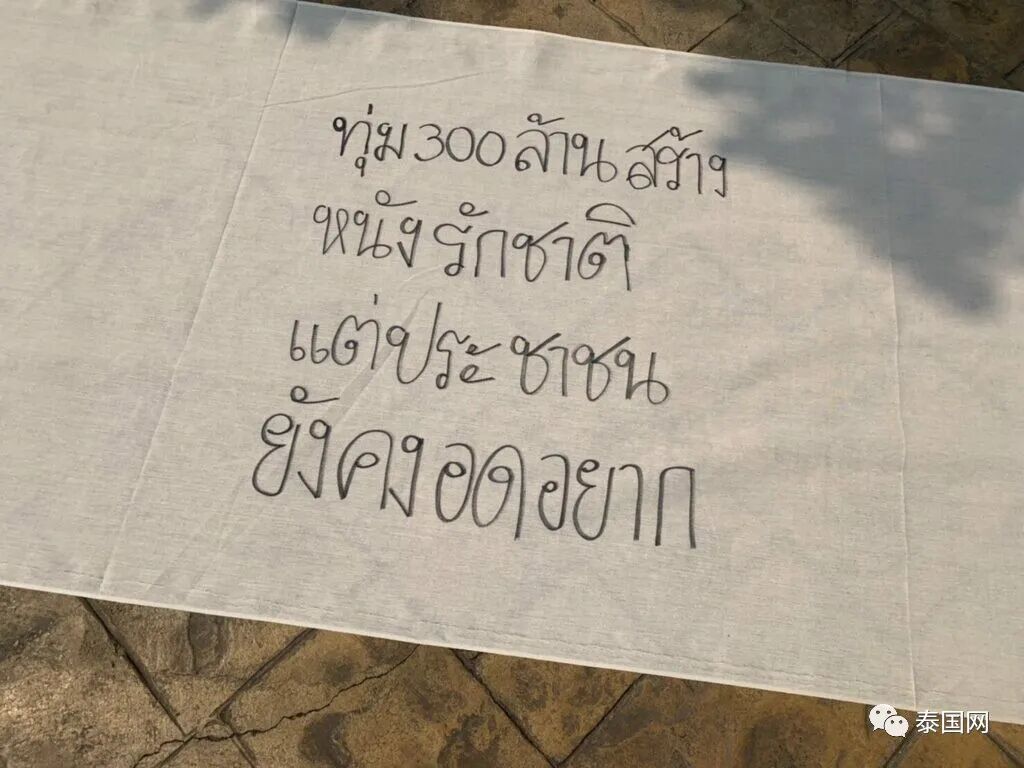 ทุ่ม 300 ล้าน สร้าง
หนัง รักชาติ
แต่ประชาชน
ยังคงอดอยาก
泰国网